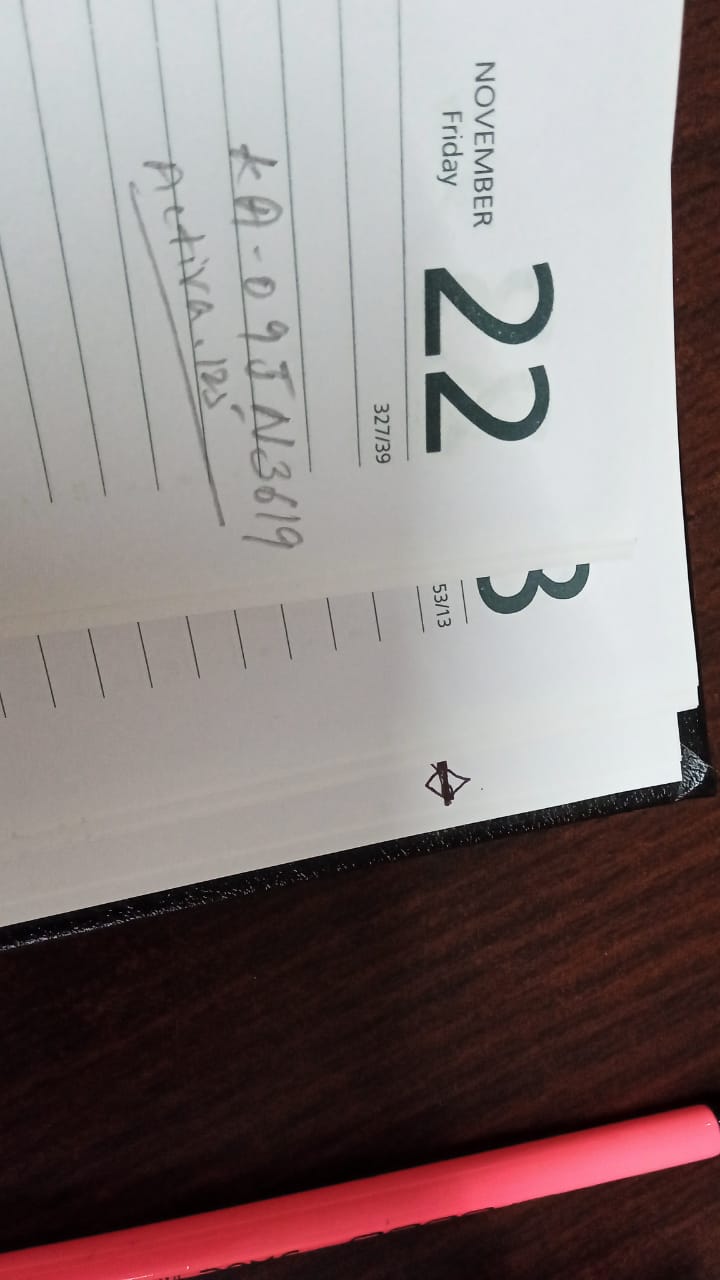 NOVEMBER
Friday
22
327/39
KA-09JN3619
Activa.125
3
53/13